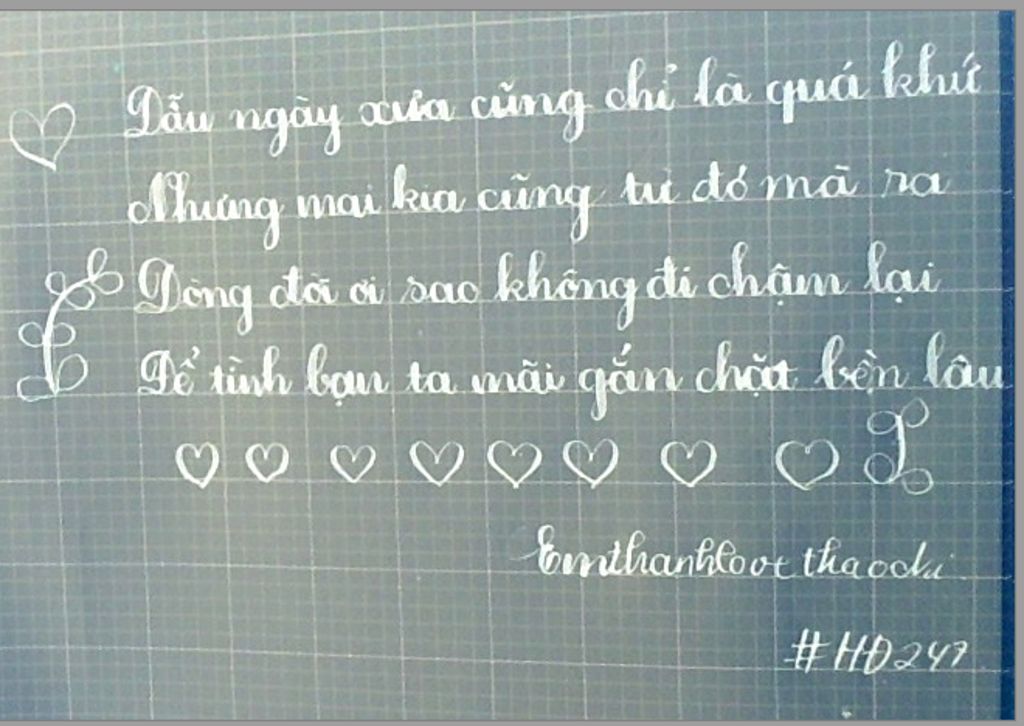 Dẫu ngày xưa cũng chỉ là quá khứ
Nhưng mai kia cũng từ đó mà ra
Dòng đời ơi sao không đi chậm lại
Để tình bạn ta mãi gắn chặt bền lâu
Emthanhlove thaochi
#HĐ247